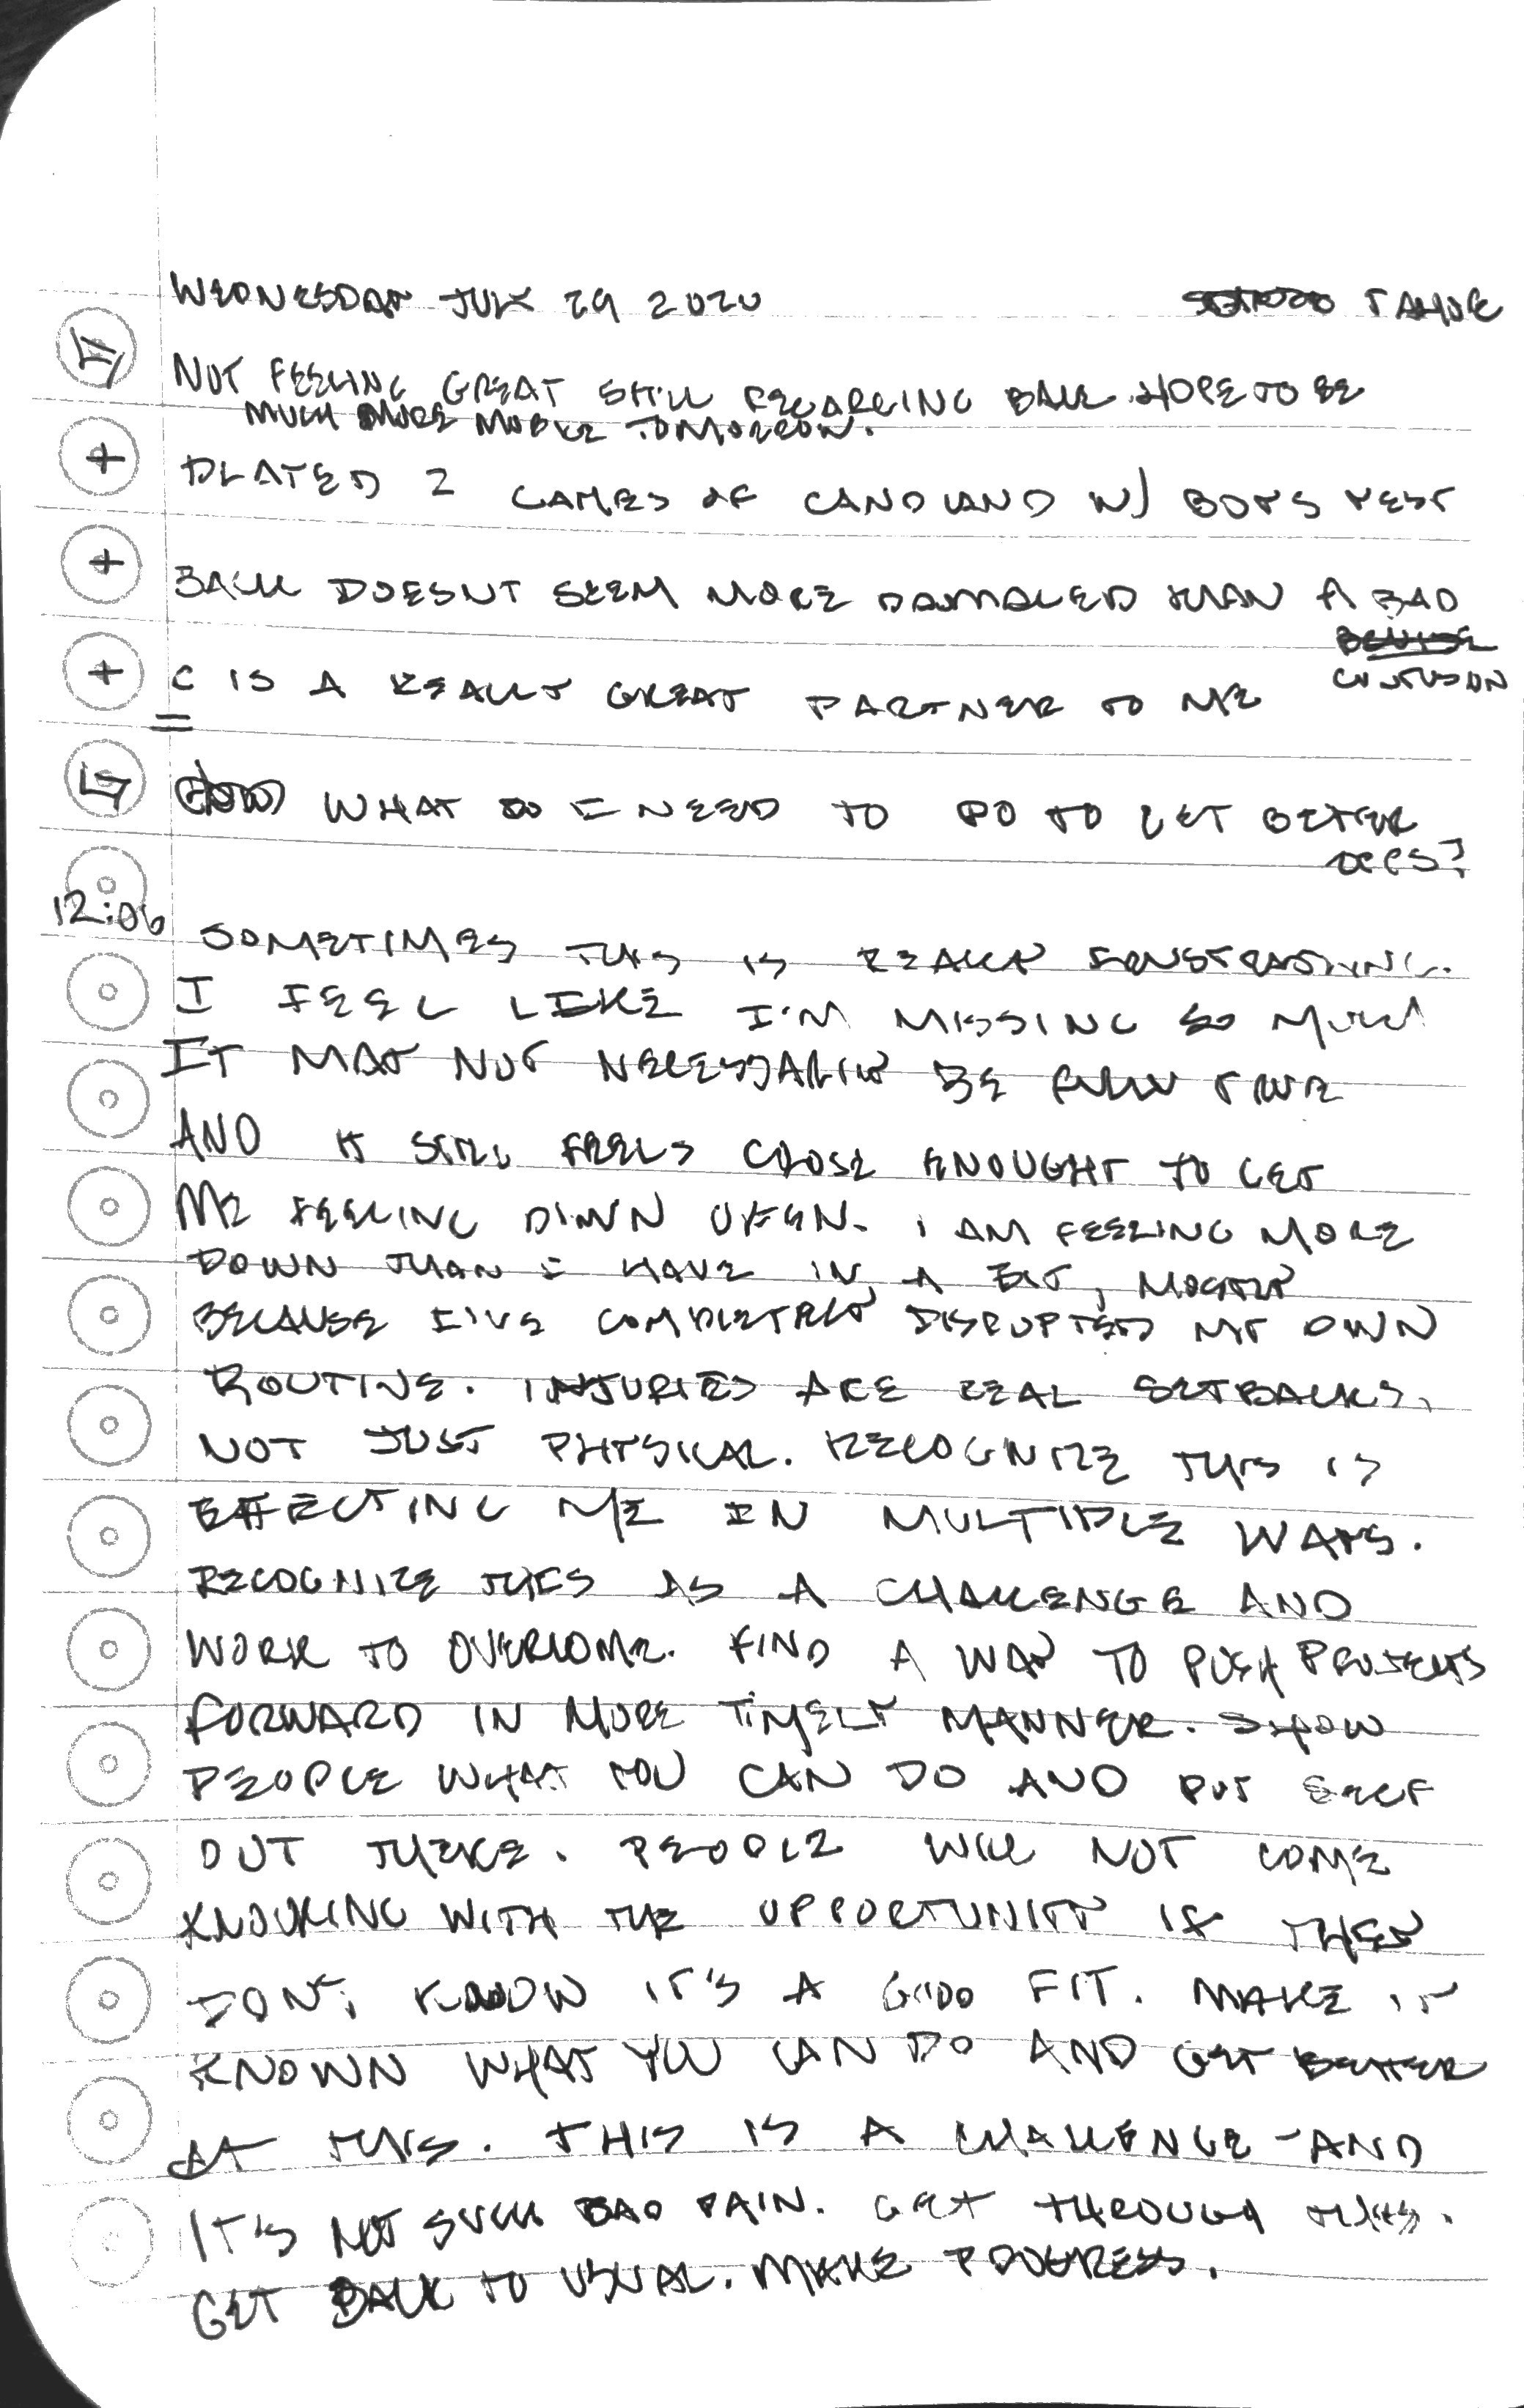 WEDNESDAY JULY 29 2020 TAHOE
NOT FEELING GREAT STILL REGARDING BACK. HOPE TO BE
MUCH MORE MOBILE TOMORROW.
+ PLAYED 2 GAMES OF CANDYLAND W/ BOYS YEST
+ BACK DOESNT SEEM MORE DAMAGED THAN A BAD
CONTUSION
+ C IS A REALLY GREAT PARTNER TO ME
WHAT DO I NEED TO DO TO GET BETTER
OPPS?
12:06 SOMETIMES THIS IS REALLY FRUSTRATING.
I FEEL LIKE I'M MISSING SO MUCH
IT MAY NOT NECESSARILY BE FULLY TRUE
AND IT STILL FEELS CLOSE ENOUGHT TO GET
ME FEELING DOWN OFTEN. I AM FEELING MORE
DOWN THAN I HAVE IN A BIT, MOSTLY
BECAUSE I'VE COMPLETELY DISRUPTED MY OWN
ROUTINE. INJURIES ARE REAL SETBACKS,
NOT JUST PHYSICAL. RECOGNIZE THIS IS
EFFECTING ME IN MULTIPLE WAYS.
RECOGNIZE THIS AS A CHALLENGE AND
WORK TO OVERCOME. FIND A WAY TO PUSH PROJECTS
FORWARD IN MORE TIMELY MANNER. SHOW
PEOPLE WHAT YOU CAN DO AND PUT SELF
OUT THERE. PEOPLE WILL NOT COME
KNOCKING WITH THE OPPORTUNITY IF THEY
DON'T KNOW IT'S A GOOD FIT. MAKE IT
KNOWN WHAT YOU CAN DO AND GET BETTER
AT THIS. THIS IS A CHALLENGE - AND
IT'S NOT SUCH BAD PAIN. GET THROUGH THIS.
GET BACK TO USUAL. MAKE PROGRESS.